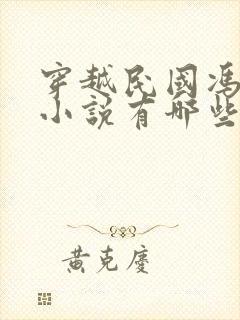 穿越民國馮
小說有哪些
黄克慶